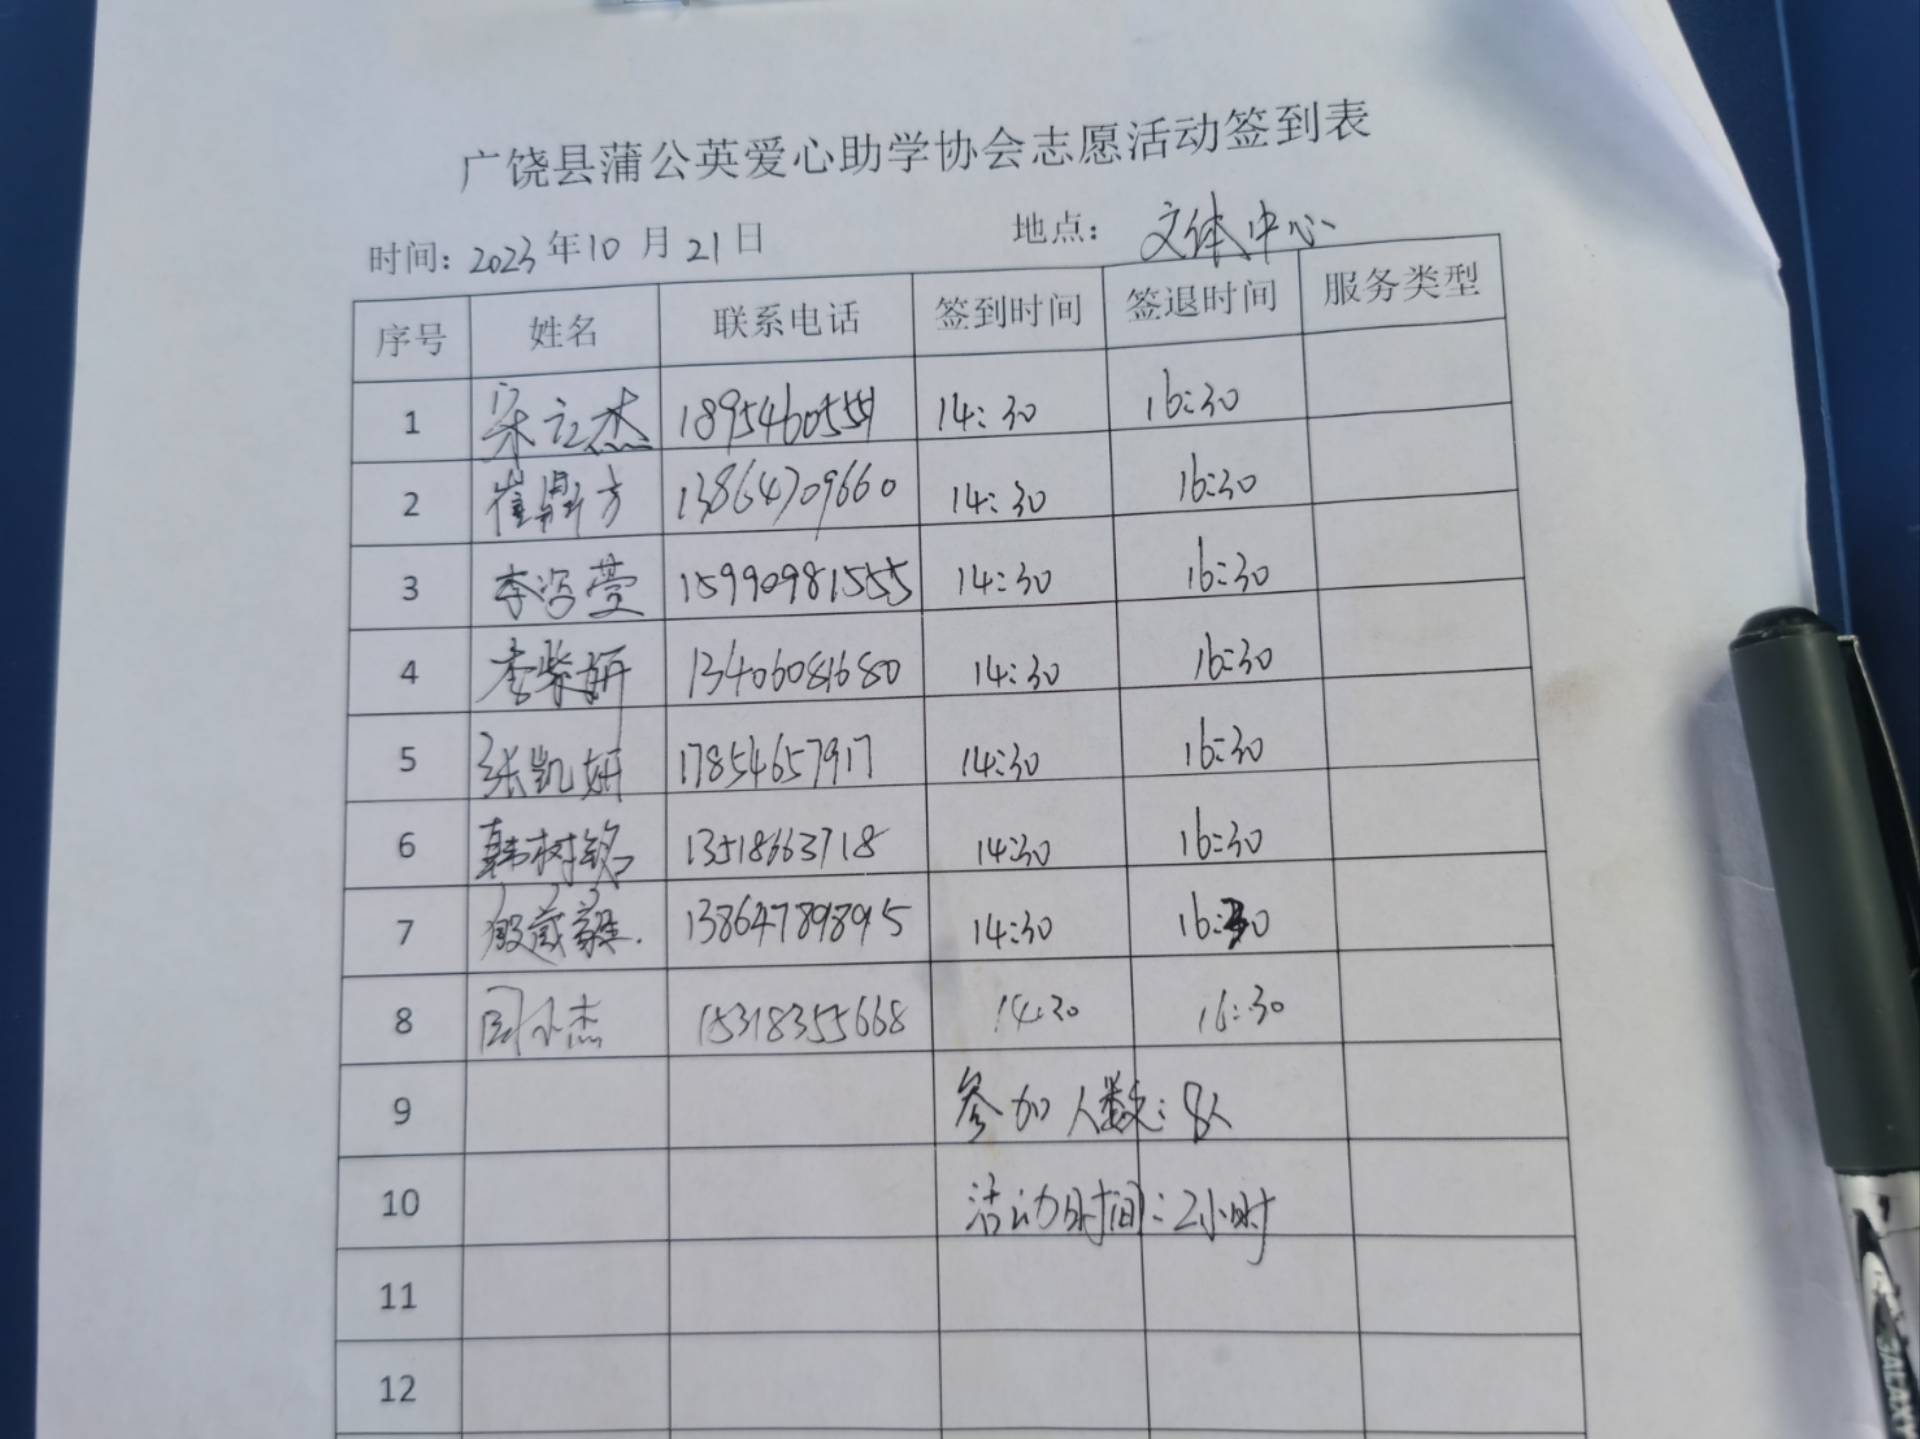 广饶县蒲公英爱心助学协会志愿活动签到表
时间：2023年10月21日 地点：文体中心
序号 姓名 联系电话 签到时间 签退时间 服务类型
1 宋立杰 14:30 16:30
2 崔鼎方 13864709660 14:30 16:30
3 李 萱 15990981555 14:30 16:30
4 李紫妍 13406081680 14:30 16:30
5 张凯妍 17854657917 14:30 16:30
6 韩树铭 13518663718 14:30 16:30
7 殷 13864789895 14:30 16:30
8 周小杰 15318355668 14:30 16:30
9 参加人数：8人
10 活动时间：2小时
11
12